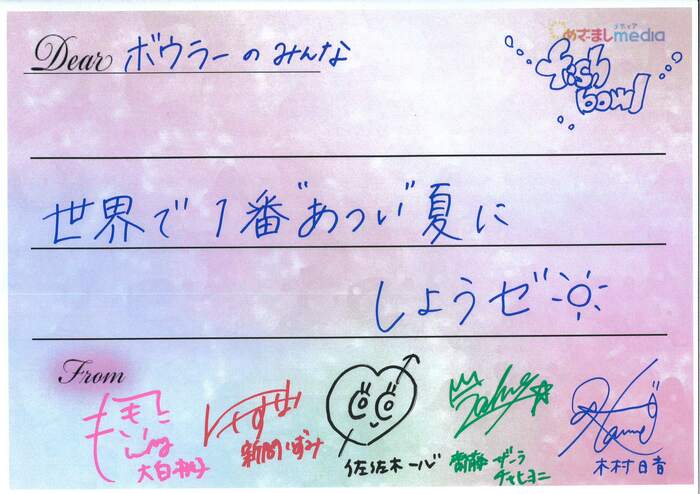 Dear ボウラーのみんな
めざましmedia
メディア
fish
bowl
世界で1番"あつい"夏に
しようゼ
From
大白桃子
新間いずみ
佐佐木一心
齋藤ザーラ
チャヒヨニ
木村日音